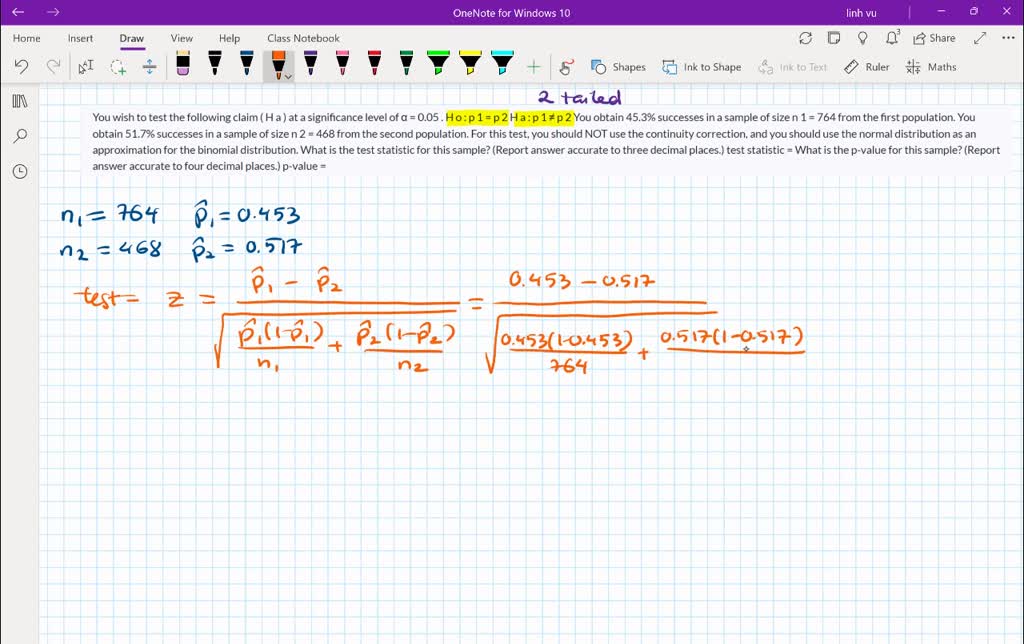 OneNote for Windows 10
linh vu
Home Insert Draw View Help Class Notebook
Share
Shapes Ink to Shape Ink to Text Ruler Maths
2 tailed
You wish to test the following claim ( H a ) at a significance level of α = 0.05 . H o : p 1 = p 2 H a : p 1 ≠ p 2 You obtain 45.3% successes in a sample of size n 1 = 764 from the first population. You
obtain 51.7% successes in a sample of size n 2 = 468 from the second population. For this test, you should NOT use the continuity correction, and you should use the normal distribution as an
approximation for the binomial distribution. What is the test statistic for this sample? (Report answer accurate to three decimal places.) test statistic = What is the p-value for this sample? (Report
answer accurate to four decimal places.) p-value =
n₁ = 764 p̂₁ = 0.453
n₂ = 468 p̂₂ = 0.517
p̂₁ - p̂₂ 0.453 - 0.517
test = z = =
√ p̂₁(1-p̂₁) + p̂₂(1-p̂₂) √ 0.453(1-0.453) + 0.517(1-0.517)
n₁ n₂ 764